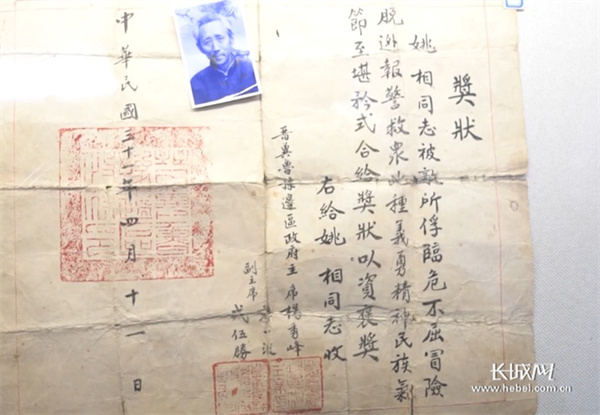 獎狀
姚相同志被敵所俘臨危不屈冒險
脫逃報警救衆此種義勇精神民族氣
節至堪矜式合給獎狀以資褒獎
右給姚相同志收
晋冀魯豫邊區政府主席楊秀峰
副主席
戎伍勝
中華民國三十一年四月十一日
长城网
www.hebei.com.cn